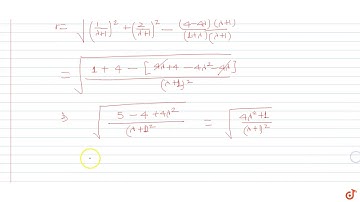 r= √((1/(λ+1))² + (2/(λ+1))² − (4-4λ)(λ+1)/(1+λ)(λ+1))
= √((1 + 4 − [4λ+4 −4λ² −4λ])/(λ+1)²)
√((5 − 4 + 4λ²)/(λ+1)²) = √((4λ²+1)/(λ+1)²)